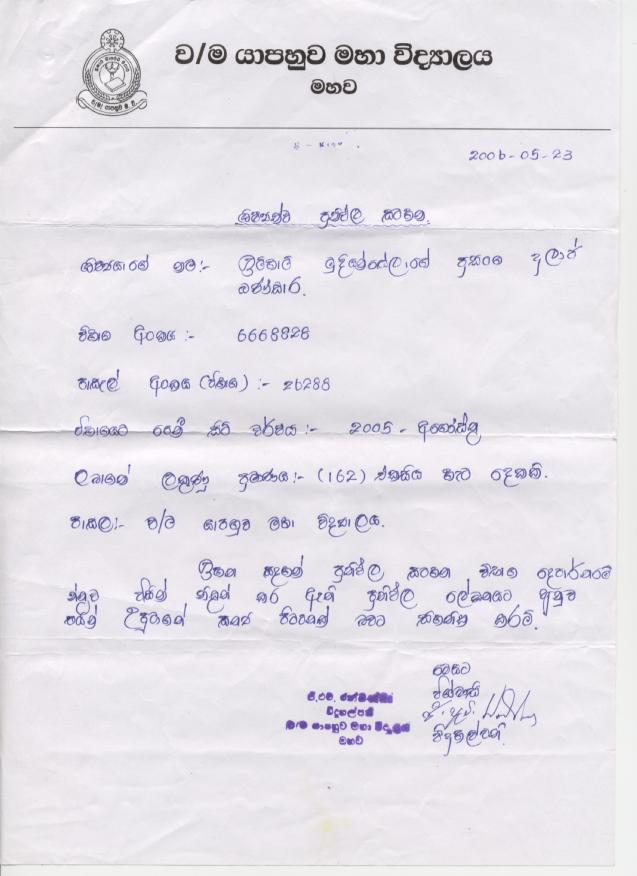 ව/ම යාපහුව මහා විද්‍යාලය
මහව
2006-05-23
ශිෂ්‍යත්ව ප්‍රතිඵල සටහන.
ශිෂ්‍යයාගේ නම:- මුදියන්සේලාගේ ප්‍රසංග දුලාජ්
බණ්ඩාර.
විභාග අංකය :- 6668828
පාසැල් අංකය (විභාග) :- 26288
විභාගයට පෙනී සිටි වර්ෂය:- 2005 - අගෝස්තු
ලබාගත් ලකුණු ප්‍රමාණය:- (162) එකසිය හැට දෙකකි.
පාසල:- ව/ම යාපහුව මහා විද්‍යාලය.
ඉහත සඳහන් ප්‍රතිඵල සටහන විභාග දෙපාර්තමේ
න්තුව විසින් නිකුත් කර ඇති ප්‍රතිඵල ලේඛනයට අනුව
උපුටාගත් පිටපතක් බවට සහතික කරමි.
මෙයට
විශ්වාසී
විදුහල්පති.
විදුහල්පති
ව/ම යාපහුව මහා විද්‍යාලය
මහව